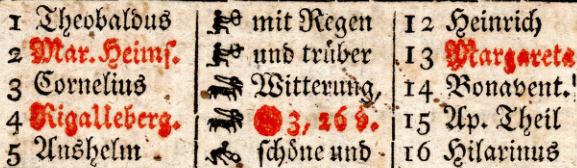 1 Theobaldus
2 Mar. Heims.
3 Cornelius
4 Rigalleberg.
5 Anshelm
mit Regen
und trüber
Witterung,
3, 26 v.
schöne und
12 Heinrich
13 Margareta
14 Bonavent.
15 Ap. Theil
16 Hilarinus